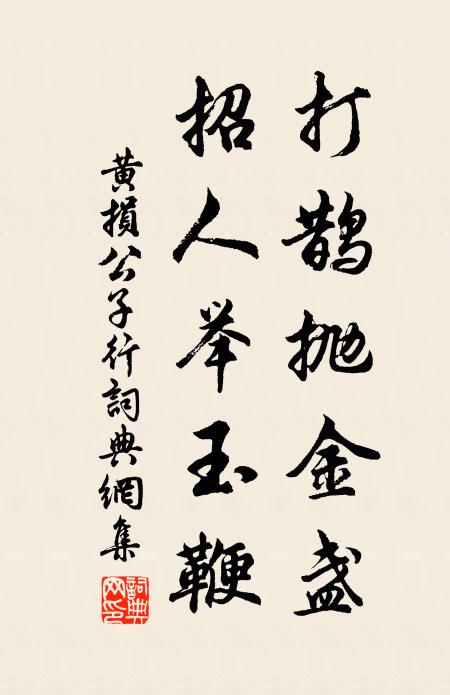 打鵲抛金盏
招人举玉鞭
黄損公子行詞典網集